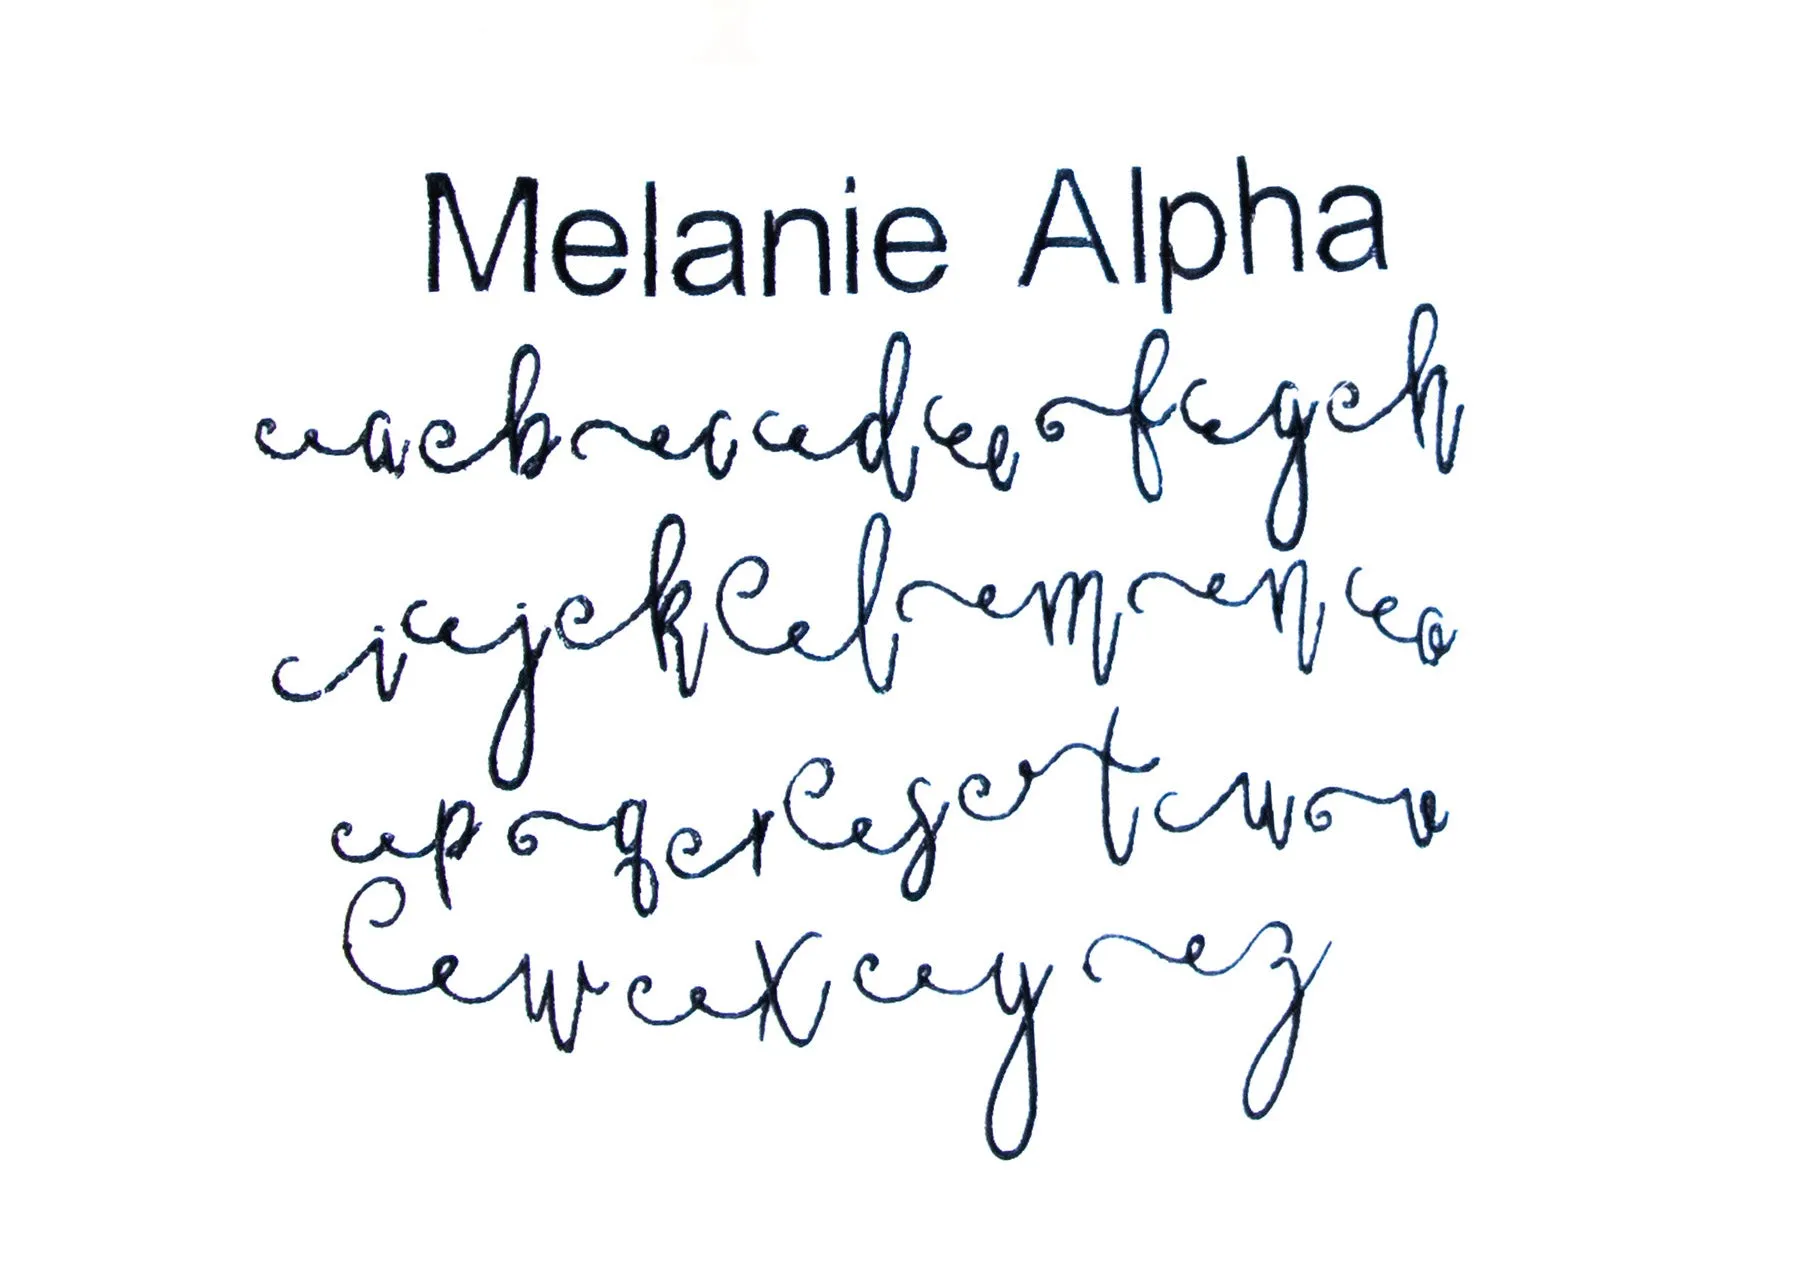 Melanie Alpha
a b c d e f g h
i j k l m n o
p q r s t u v
w x y z